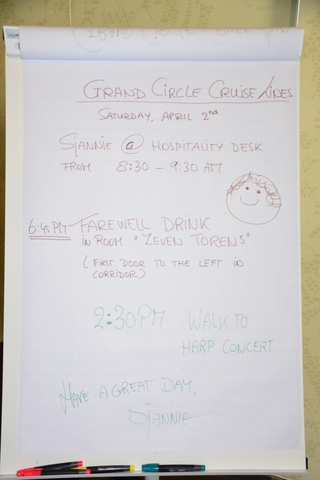 GRAND CIRCLE CRUISE LINES
SATURDAY, APRIL 2nd
SJANNIE @ HOSPITALITY DESK
FROM 8:30 - 9:30 AM
6:45 PM FAREWELL DRINK
IN ROOM "ZEVEN TORENS"
(FIRST DOOR TO THE LEFT IN
CORRIDOR)
2:30PM WALK TO
HARP CONCERT
HAVE A GREAT DAY,
SJANNIE